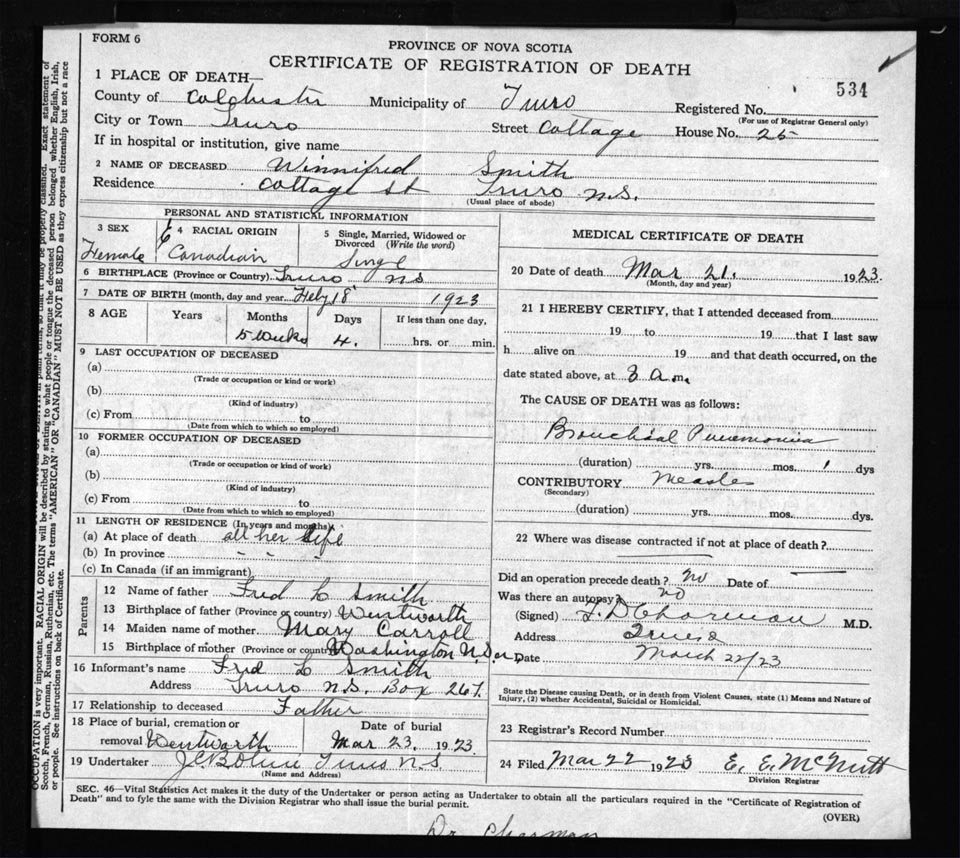 FORM 6
PROVINCE OF NOVA SCOTIA
CERTIFICATE OF REGISTRATION OF DEATH
534
1 PLACE OF DEATH—
County of Colchester Municipality of Truro Registered No.
(For use of Registrar General only)
City or Town Truro Street Cottage House No. 25
If in hospital or institution, give name
2 NAME OF DECEASED Winnifred Smith
Residence Cottage St Truro N.S.
(Usual place of abode)
PERSONAL AND STATISTICAL INFORMATION
3 SEX
Female
4 RACIAL ORIGIN
Canadian
5 Single, Married, Widowed or
Divorced (Write the word)
Singl
6 BIRTHPLACE (Province or Country) Truro NS
7 DATE OF BIRTH (month, day and year) Feby 18 1923
8 AGE Years Months Days If less than one day,
5 weeks 4. hrs. or min.
9 LAST OCCUPATION OF DECEASED
(a)
(Trade or occupation or kind or work)
(b)
(Kind of industry)
(c) From to
(Date from which to which so employed)
10 FORMER OCCUPATION OF DECEASED
(a)
(Trade or occupation or kind of work)
(b)
(Kind of industry)
(c) From to
(Date from which to which so employed)
11 LENGTH OF RESIDENCE (In years and months)
(a) At place of death all her life
(b) In province
(c) In Canada (if an immigrant)
Parents
12 Name of father Fred L Smith
13 Birthplace of father (Province or country) Wentworth
14 Maiden name of mother Mary Carroll
15 Birthplace of mother (Province or country) Washington
16 Informant's name Fred L Smith
Address Truro N.S. Box 267.
17 Relationship to deceased Father
18 Place of burial, cremation or
removal Wentworth
Date of burial
Mar 23. 1923
19 Undertaker Truro N.S
(Name and Address)
MEDICAL CERTIFICATE OF DEATH
20 Date of death Mar 21. 1923.
(Month, day and year)
21 I HEREBY CERTIFY, that I attended deceased from
19 to 19 that I last saw
h alive on 19 and that death occurred, on the
date stated above, at 8 a.m.
The CAUSE OF DEATH was as follows:
Bronchial Pneumonia
(duration) yrs. mos. 1 dys
CONTRIBUTORY Measles
(Secondary)
(duration) yrs. mos. dys.
22 Where was disease contracted if not at place of death?
Did an operation precede death? no Date of
Was there an autopsy? no
(Signed) Charman M.D.
Address Truro
Date March 22/23
State the Disease causing Death, or in death from Violent Causes, state (1) Means and Nature of
Injury, (2) whether Accidental, Suicidal or Homicidal.
23 Registrar's Record Number
24 Filed Mar 22 1923 E. E. McNutt
Division Registrar
SEC. 46—Vital Statistics Act makes it the duty of the Undertaker or person acting as Undertaker to obtain all the particulars required in the "Certificate of Registration of
Death" and to fyle the same with the Division Registrar who shall issue the burial permit.
(OVER)
Dr Charman
OCCUPATION is very important. RACIAL ORIGIN will be described by stating to what people or tongue the deceased person belonged whether English, Irish,
Scotch, French, German, Russian, Ruthenian, etc. The terms "AMERICAN" OR "CANADIAN" MUST NOT BE USED as they express citizenship but not a race
or people. See instructions on back of Certificate.